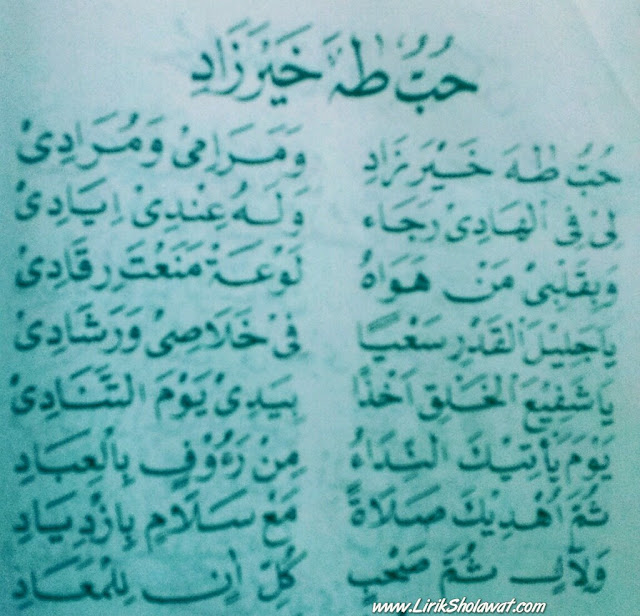 حُبُّ طٰهَ خَيْرَ زَادِ
حُبُّ طٰهَ خَيْرَ زَادِ وَمَرَامِىْ وَمُرَادِىْ
لِىْ فِى الْهَادِىْ رَجَاء وَلَهُ عِنْدِىْ اِيَادِىْ
وَبِقَلْبِىْ مَنْ هَوَاهُ لَوْعَةْ مَنَعْتَ رِقَادِىْ
يَاجَلِيْلَ الْقَدْرِ سَعْيًا فِىْ خَلَاصِىْ وَرَشَادِىْ
يَاشَفِيْعَ الْخَلْقِ اَخْذًا بِيَدِىْ يَوْمَ التَّنَادِىْ
يَوْمَ يَأْتِيْكَ النِّدَاءُ مِنْ رَءُوْفٍ بِالْعِبَادِ
ثُمَّ اُهْدِيْكَ صَلَاةً مَعْ سَلَامٍ بِازْدِيَادِ
وَلِآلٍ ثُمَّ صَحْبٍ كُلَّ اٰنٍ لِلْمَعَادِ
www.LirikSholawat.com